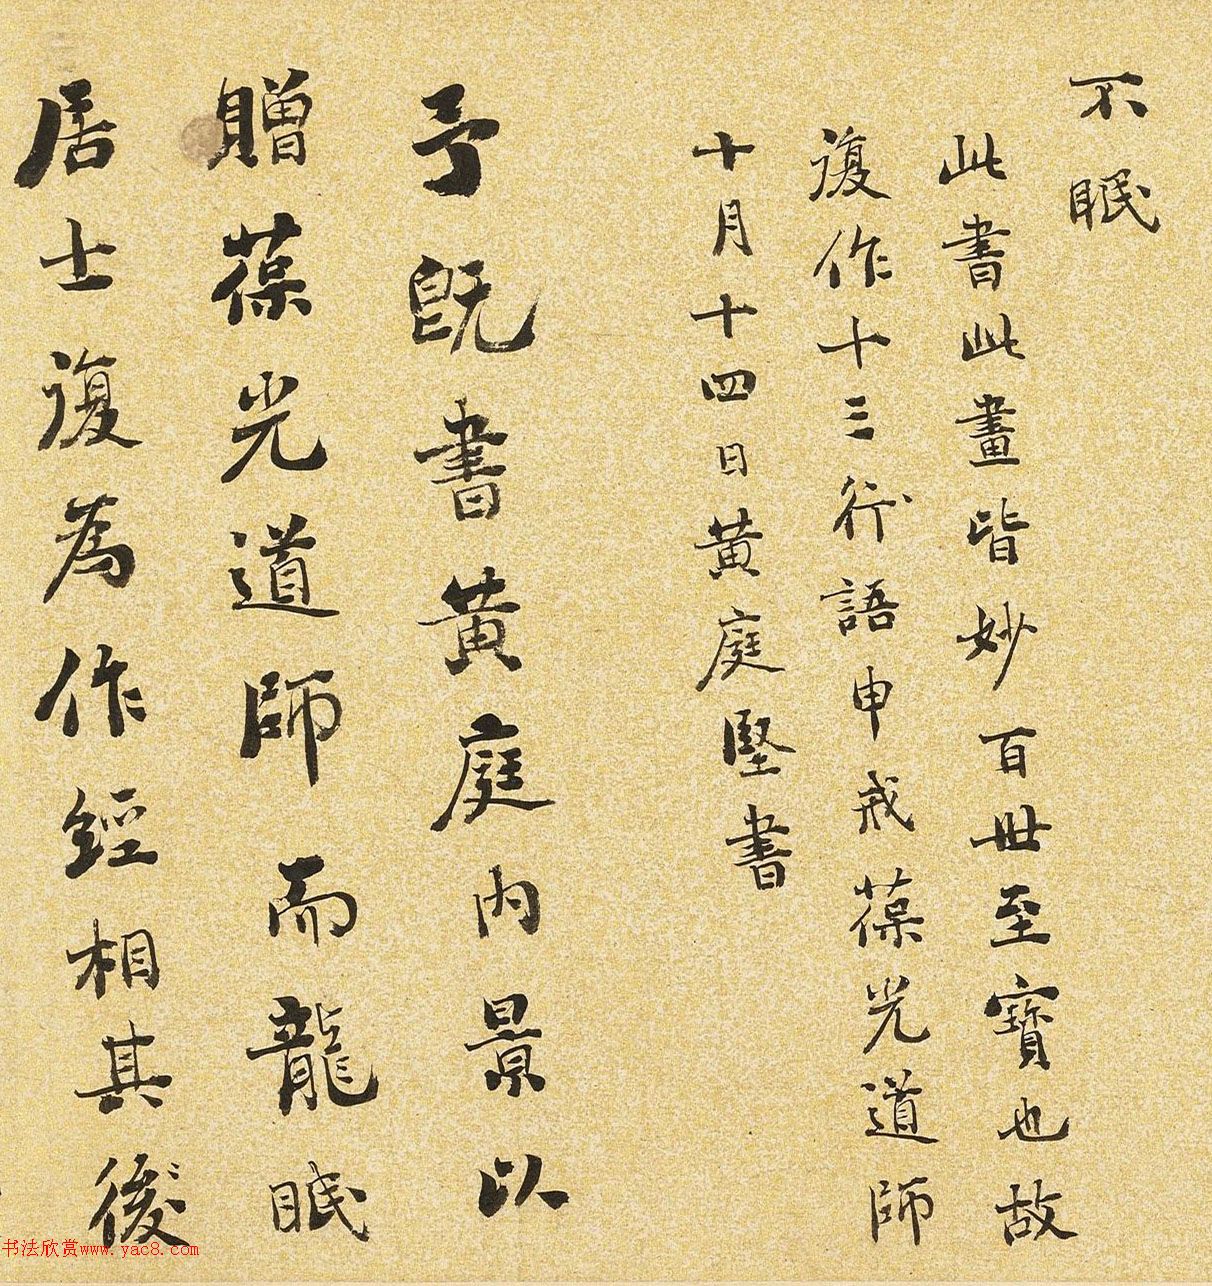 不眠
此書此畫皆妙百世至寶也故
復作十三行語申戒葆光道師
十月十四日黃庭堅書
予既書黃庭內景以
贈葆光道師而龍眠
居士復為作經相其後
书法欣赏www.yac8.com